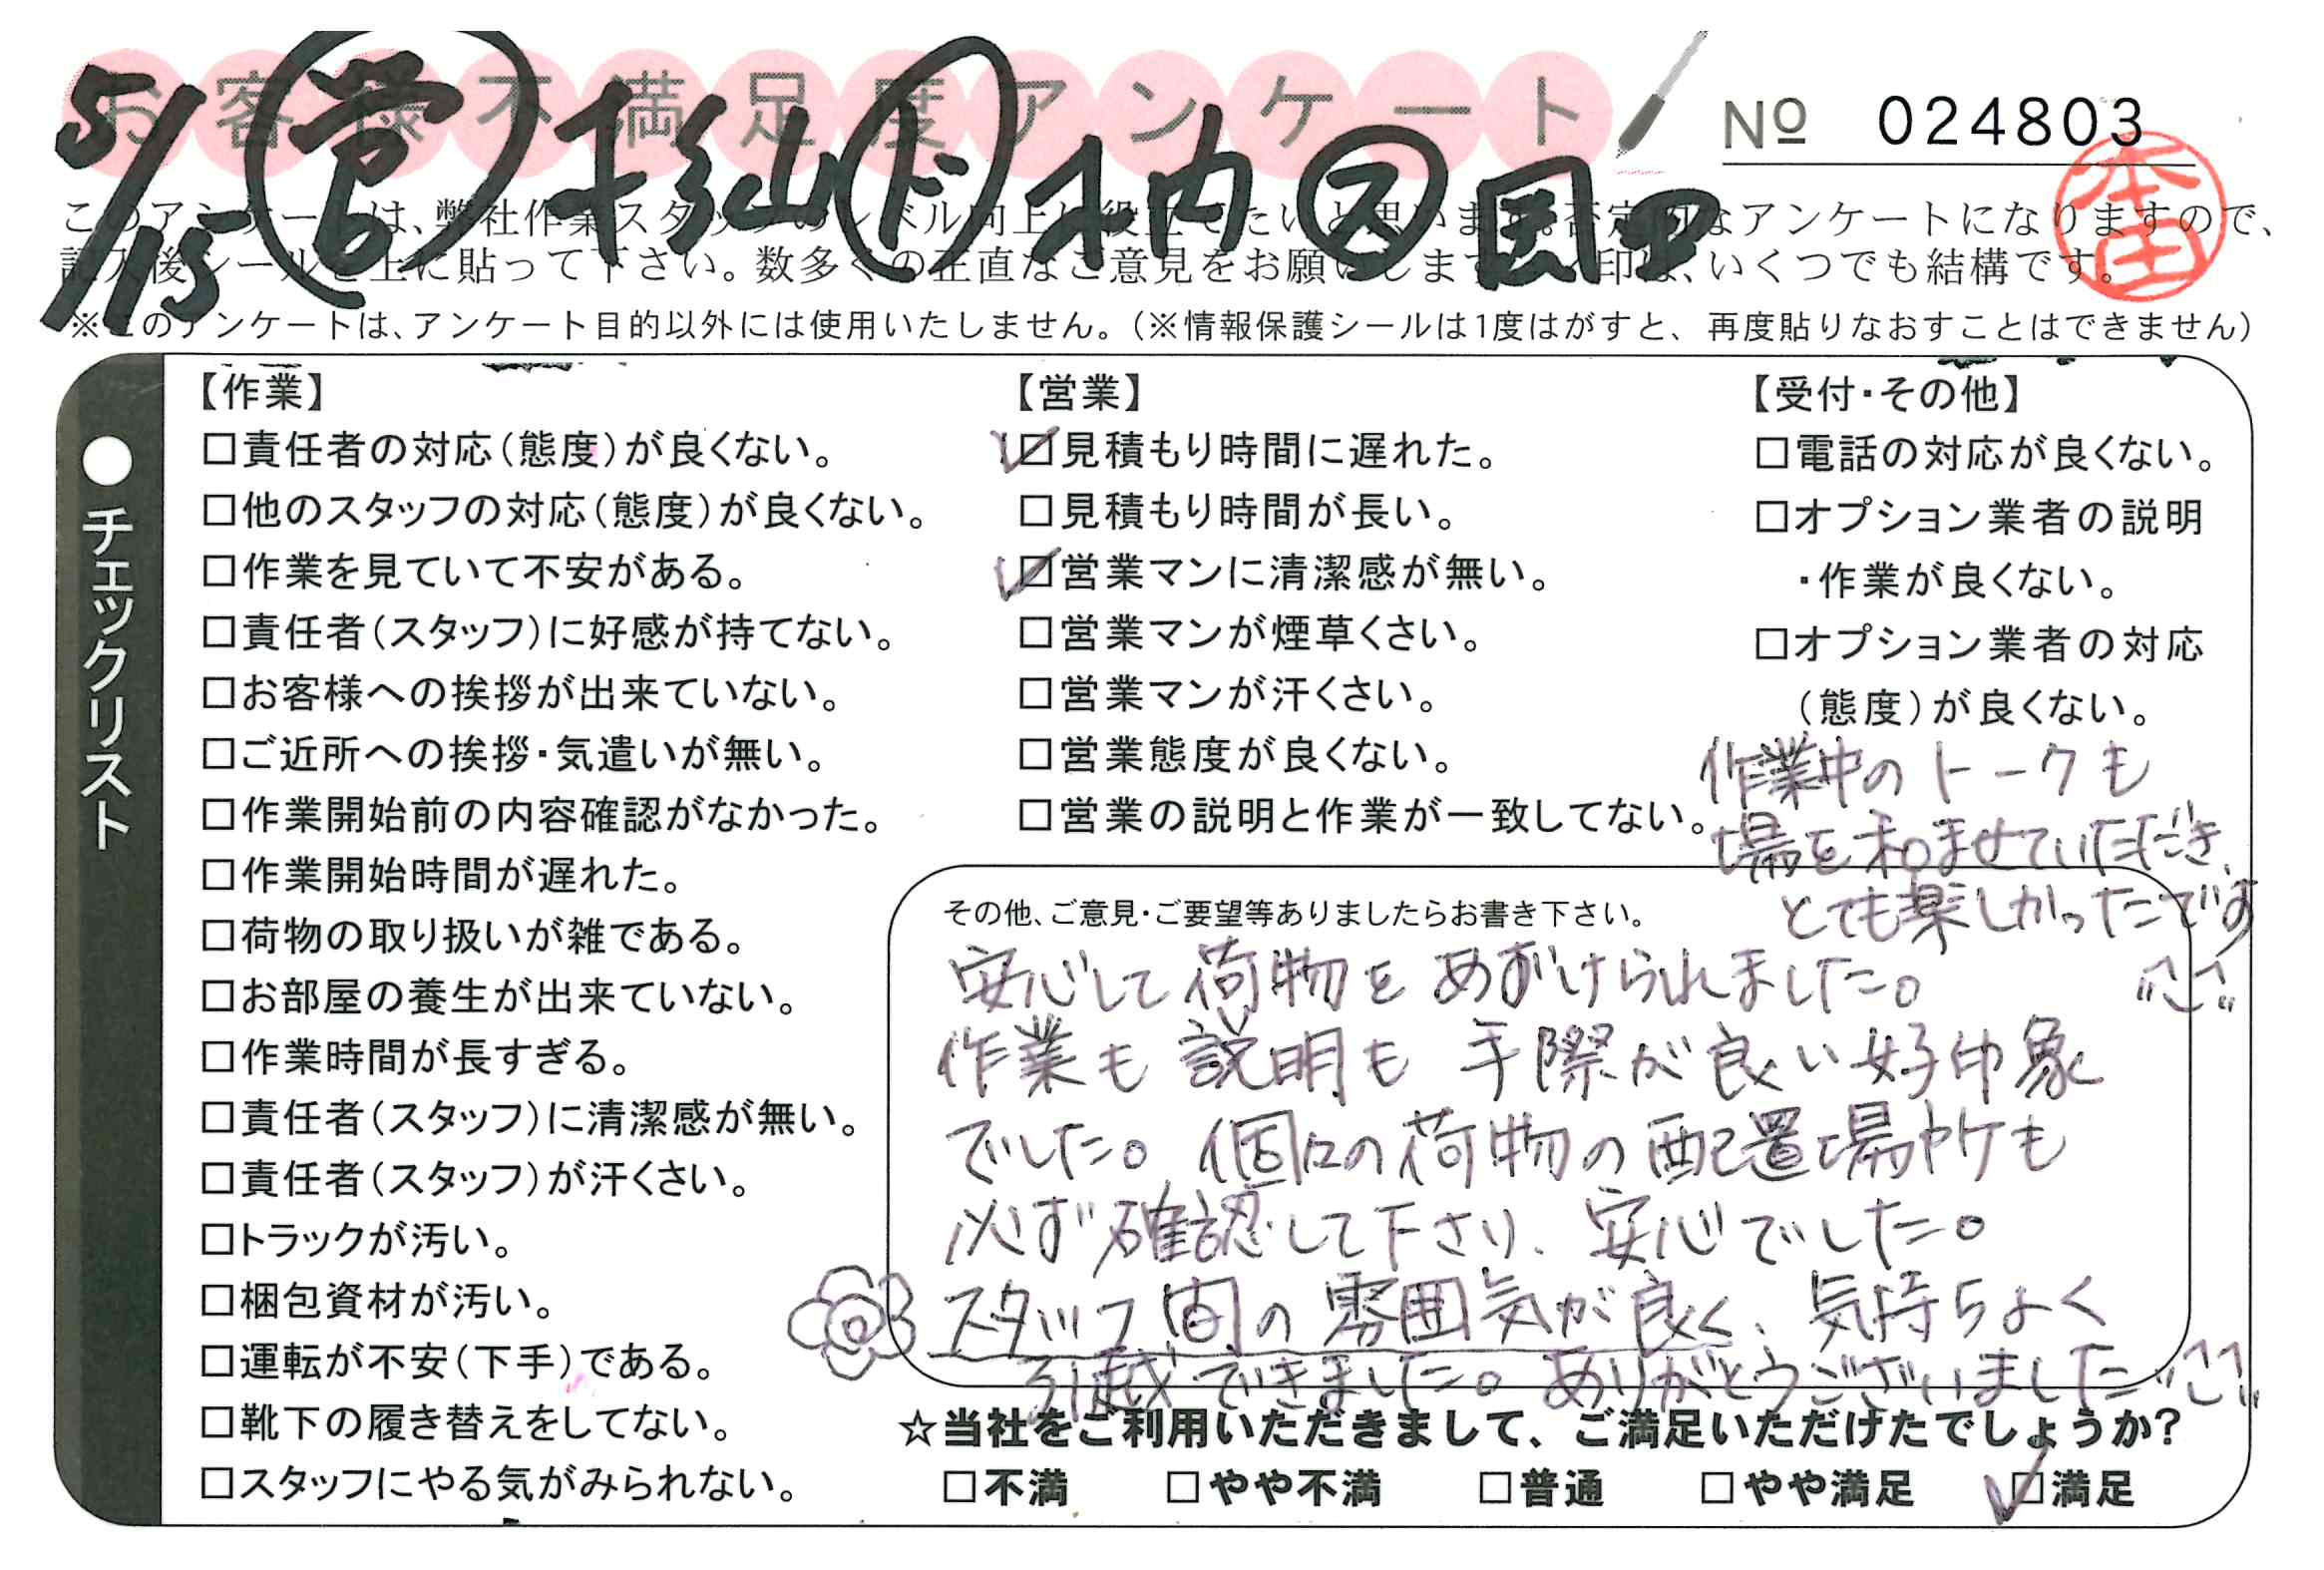 お客様不満足度アンケート
№ 024803
5/15 営 杉山 ド 木内 ス 園田
本田
このアンケートは、弊社作業スタッフのレベル向上に役立てたいと思います。否定的なアンケートになりますので、
記入後シールを上に貼って下さい。数多くの正直なご意見をお願いします。✓印は、いくつでも結構です。
※このアンケートは、アンケート目的以外には使用いたしません。(※情報保護シールは1度はがすと、再度貼りなおすことはできません)
●チェックリスト
【作業】
□責任者の対応(態度)が良くない。
□他のスタッフの対応(態度)が良くない。
□作業を見ていて不安がある。
□責任者(スタッフ)に好感が持てない。
□お客様への挨拶が出来ていない。
□ご近所への挨拶・気遣いが無い。
□作業開始前の内容確認がなかった。
□作業開始時間が遅れた。
□荷物の取り扱いが雑である。
□お部屋の養生が出来ていない。
□作業時間が長すぎる。
□責任者(スタッフ)に清潔感が無い。
□責任者(スタッフ)が汗くさい。
□トラックが汚い。
□梱包資材が汚い。
□運転が不安(下手)である。
□靴下の履き替えをしてない。
□スタッフにやる気がみられない。
【営業】
☑見積もり時間に遅れた。
□見積もり時間が長い。
☑営業マンに清潔感が無い。
□営業マンが煙草くさい。
□営業マンが汗くさい。
□営業態度が良くない。
□営業の説明と作業が一致してない。
【受付・その他】
□電話の対応が良くない。
□オプション業者の説明
・作業が良くない。
□オプション業者の対応
(態度)が良くない。
作業中のトークも
場を和ませていただき、
とても楽しかったです
その他、ご意見・ご要望等ありましたらお書き下さい。
安心して荷物をあずけられました。
作業も説明も手際が良い好印象
でした。個々の荷物の配置場所も
必ず確認して下さり、安心でした。
スタッフ間の雰囲気が良く、気持ちよく
引越できました。ありがとうございました
☆当社をご利用いただきまして、ご満足いただけたでしょうか?
□不満 □やや不満 □普通 □やや満足 ☑満足